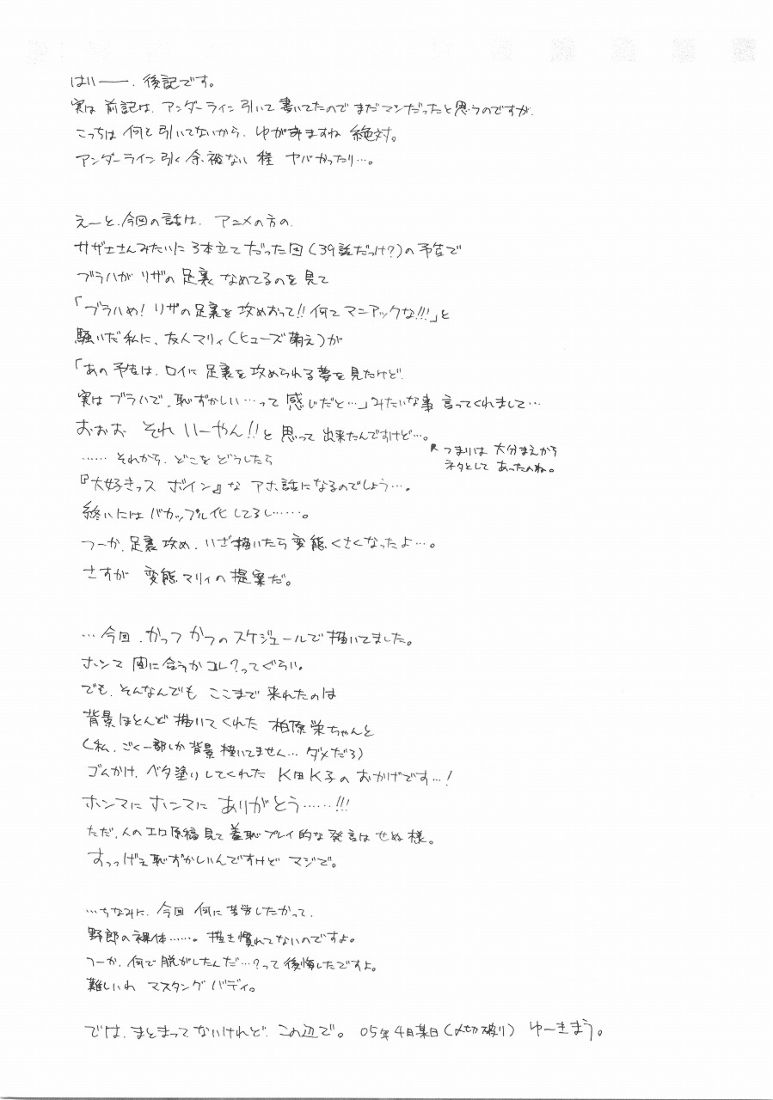 はいー―、後記です。
実は 前記は、アンダーライン引いて書いてたのでまだマシだったと思うのですが、
こっちは 何も引いてないから、ゆがみますね 絶対。
アンダーライン引く余裕ない程 ヤバかったり…。
えーと、今回の話は、アニメの方の、
サザエさんみたいに3本立てだった回(39話だっけ?)の予告で
ブラハがリザの足裏なめてるのを見て
「ブラハめ!リザの足裏を攻めおって!!何てマニアックな!!!」と
騒いだ私に、友人マリィ(ヒューズ萌え)が
「あの予告は、ロイに足裏を攻められる夢を見たけど、
実はブラハで、恥ずかしい…って感じだと…」みたいな事言ってくれまして…
おぉお それいーやん!!と思って出来たんですけど…。
つまりは大分まえから
ネタとしてあったのね。
…… それから、どこをどうしたら
『大好きっス ボイン』なアホ話になるのでしょう…。
終いにはバカップル化してるし……。
つーか、足裏攻め、いざ描いたら変態くさくなったよ…。
さすが 変態マリィの提案だ。
…今回、かつかつのスケジュールで描いてました。
ホンマ 間に合うかコレ?ってぐらい。
でも、そんなんでも ここまで来れたのは
背景ほとんど描いてくれた 柏原栄ちゃんと
(私、ごく一部しか背景描いてません…ダメだろ)
ゴムかけ、ベタ塗りしてくれた K田K子のおかげです…!
ホンマに ホンマに ありがとう……!!!
ただ、人のエロ原稿見て羞恥プレイ的な発言はせぬ様。
すっっげえ恥ずかしいんですけど マジで。
…ちなみに、今回 何に苦労したかって、
野郎の裸体……。描き慣れてないのですよ。
つーか、何で脱がしたんだ…?って後悔したですよ。
難しいわ マスタングバディ。
では、まとまってないけれど、この辺で。 05年4月某日(〆切破り) ゆーきまう。